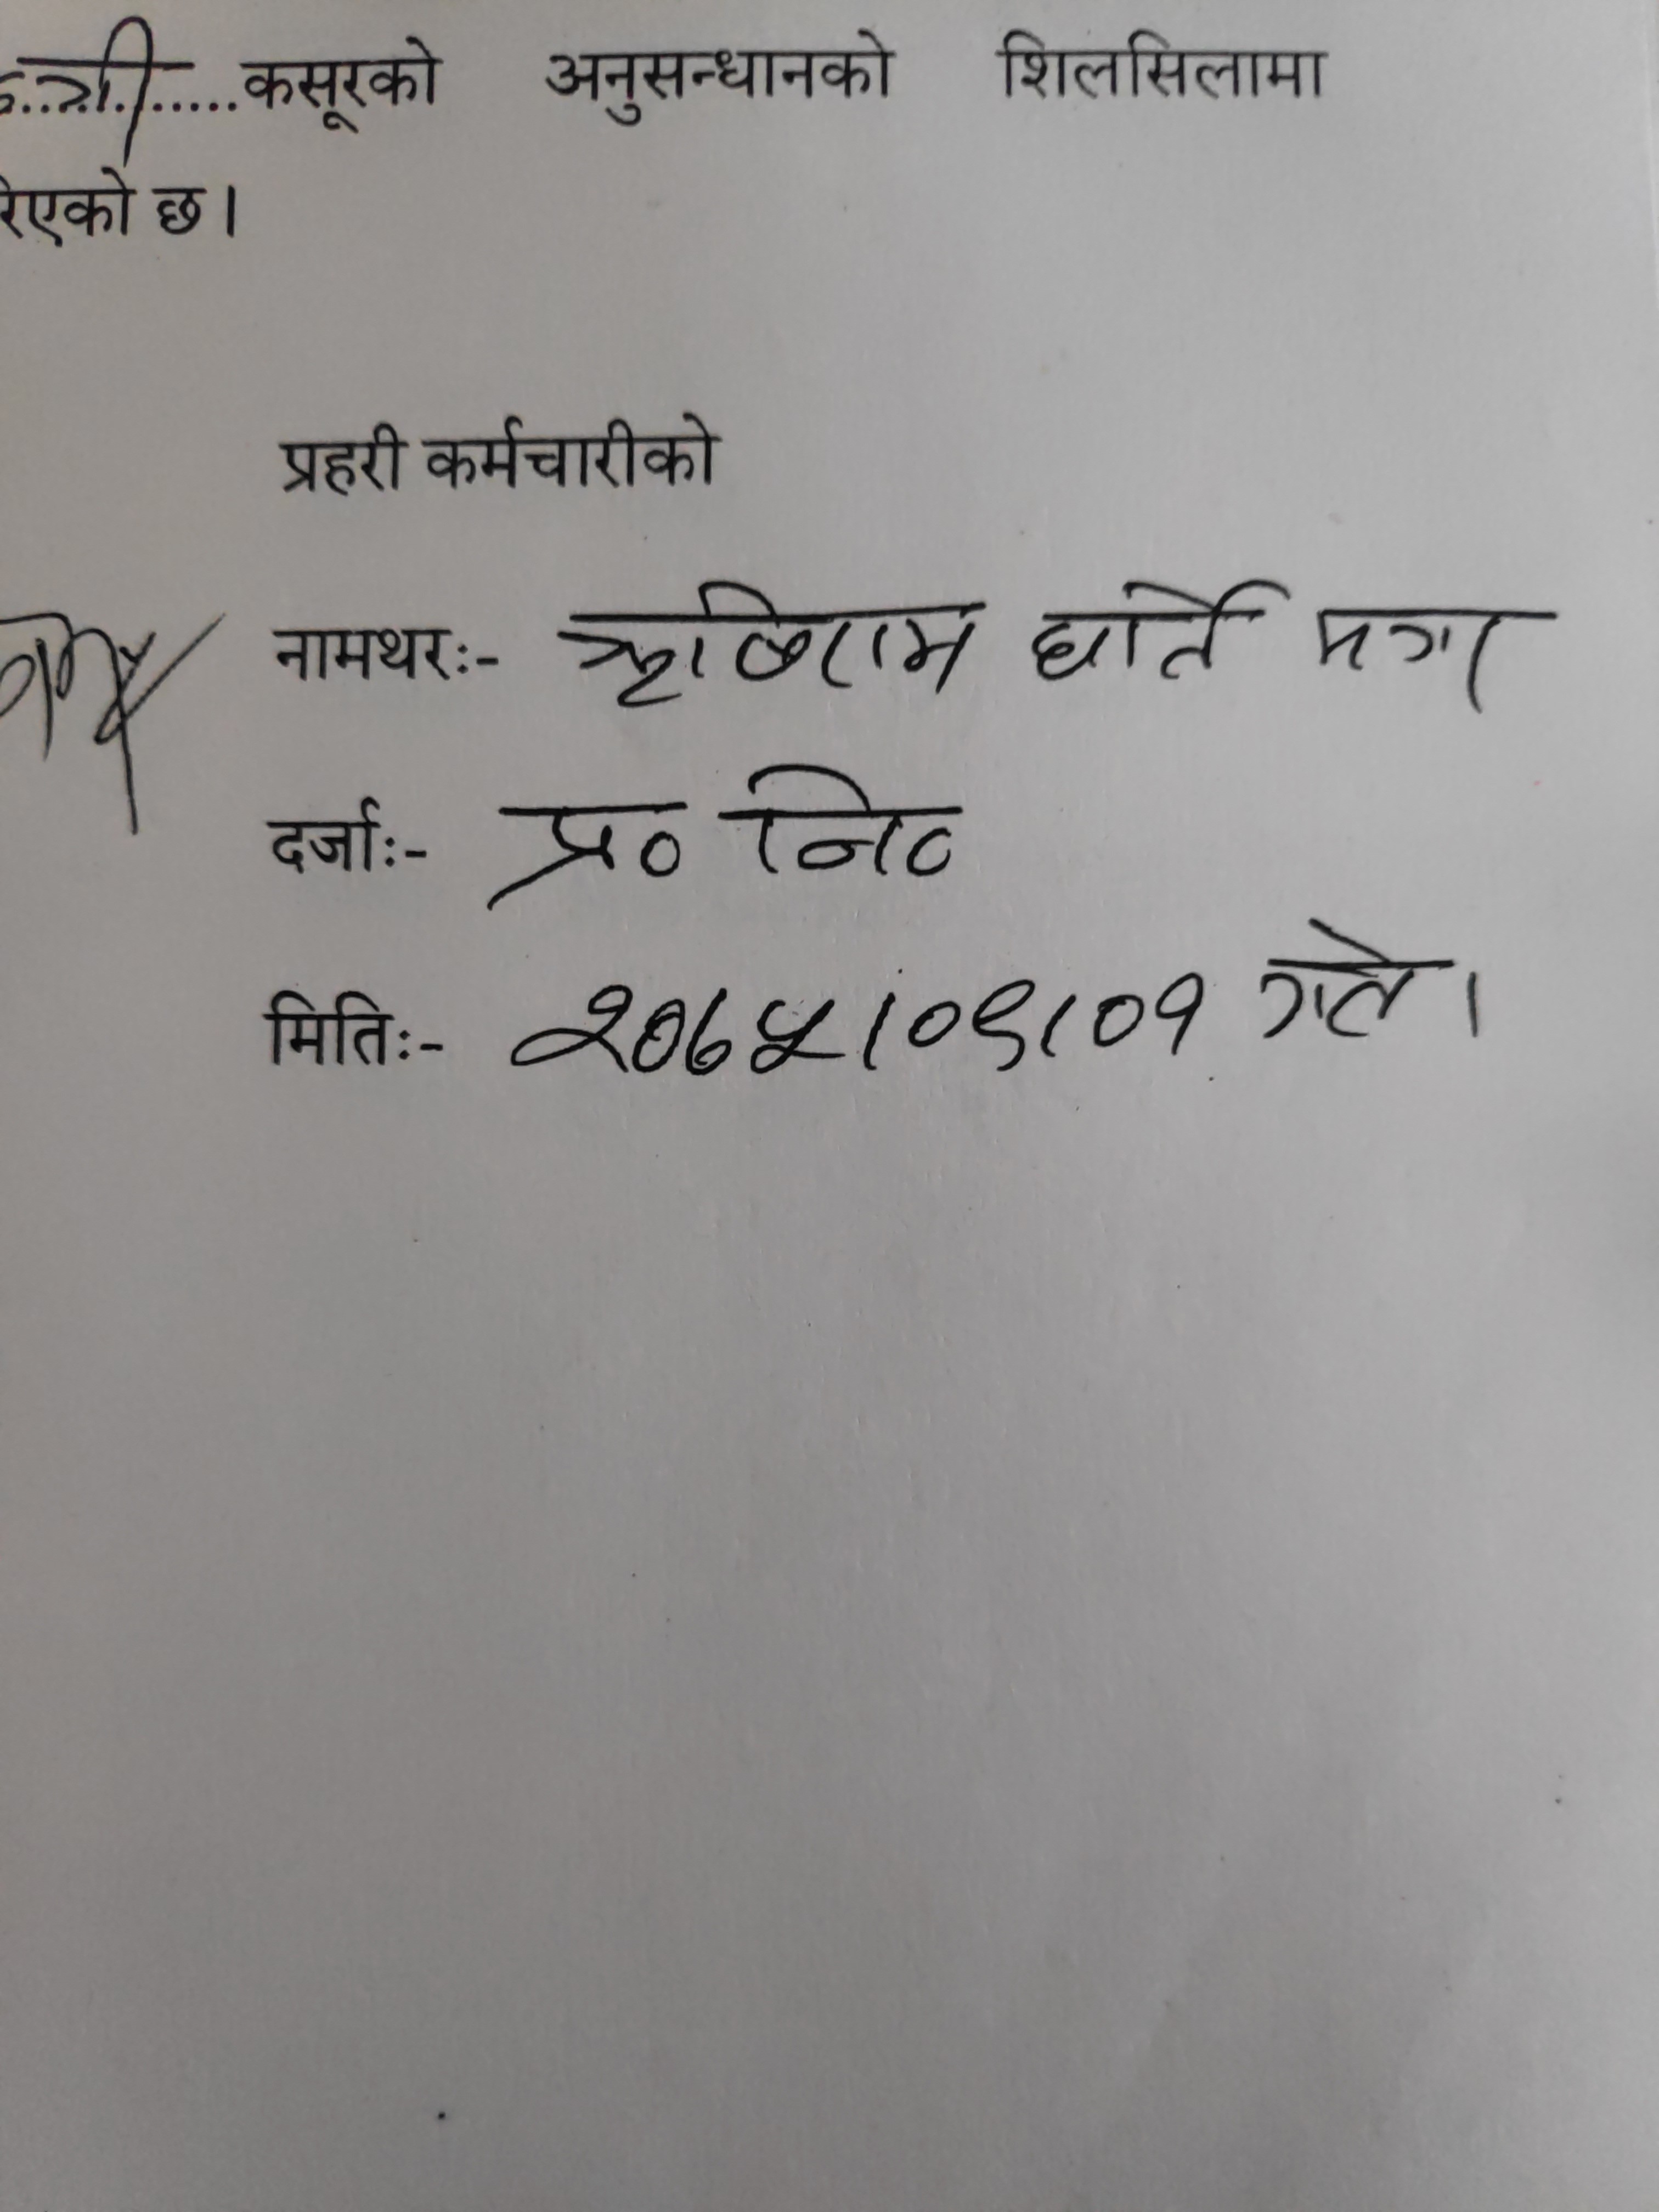 कसूरको अनुसन्धानको शिलसिलामा
रिएको छ।
प्रहरी कर्मचारीको
नामथरः- ऋषिराम घर्ति मगर
दर्जाः- प्र० नि०
मितिः- २०७५।०९।०१ गते।